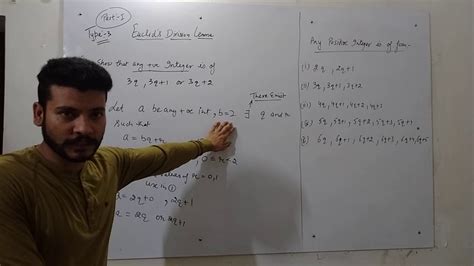 Part-I
Type-3
Euclid's Division Lemma
Show that any +ve Integer is of
3q, 3q+1 or 3q+2
Let a be any +ve int, b=2 ∃ q and r
There Exist
such that
a = bq+r
0 ≤ r < 2
values of r = 0,1
use in ①
a = 2q+0, 2q+1
a = 2q or 2q+1
Any Positive Integer is of form-
(i) 2q, 2q+1
(ii) 3q, 3q+1, 3q+2
(iii) 4q, 4q+1, 4q+2, 4q+3
5q, 5q+1, 5q+2, 5q+3, 5q+4
6q, 6q+1, 6q+2, 6q+3, 6q+4, 6q+5